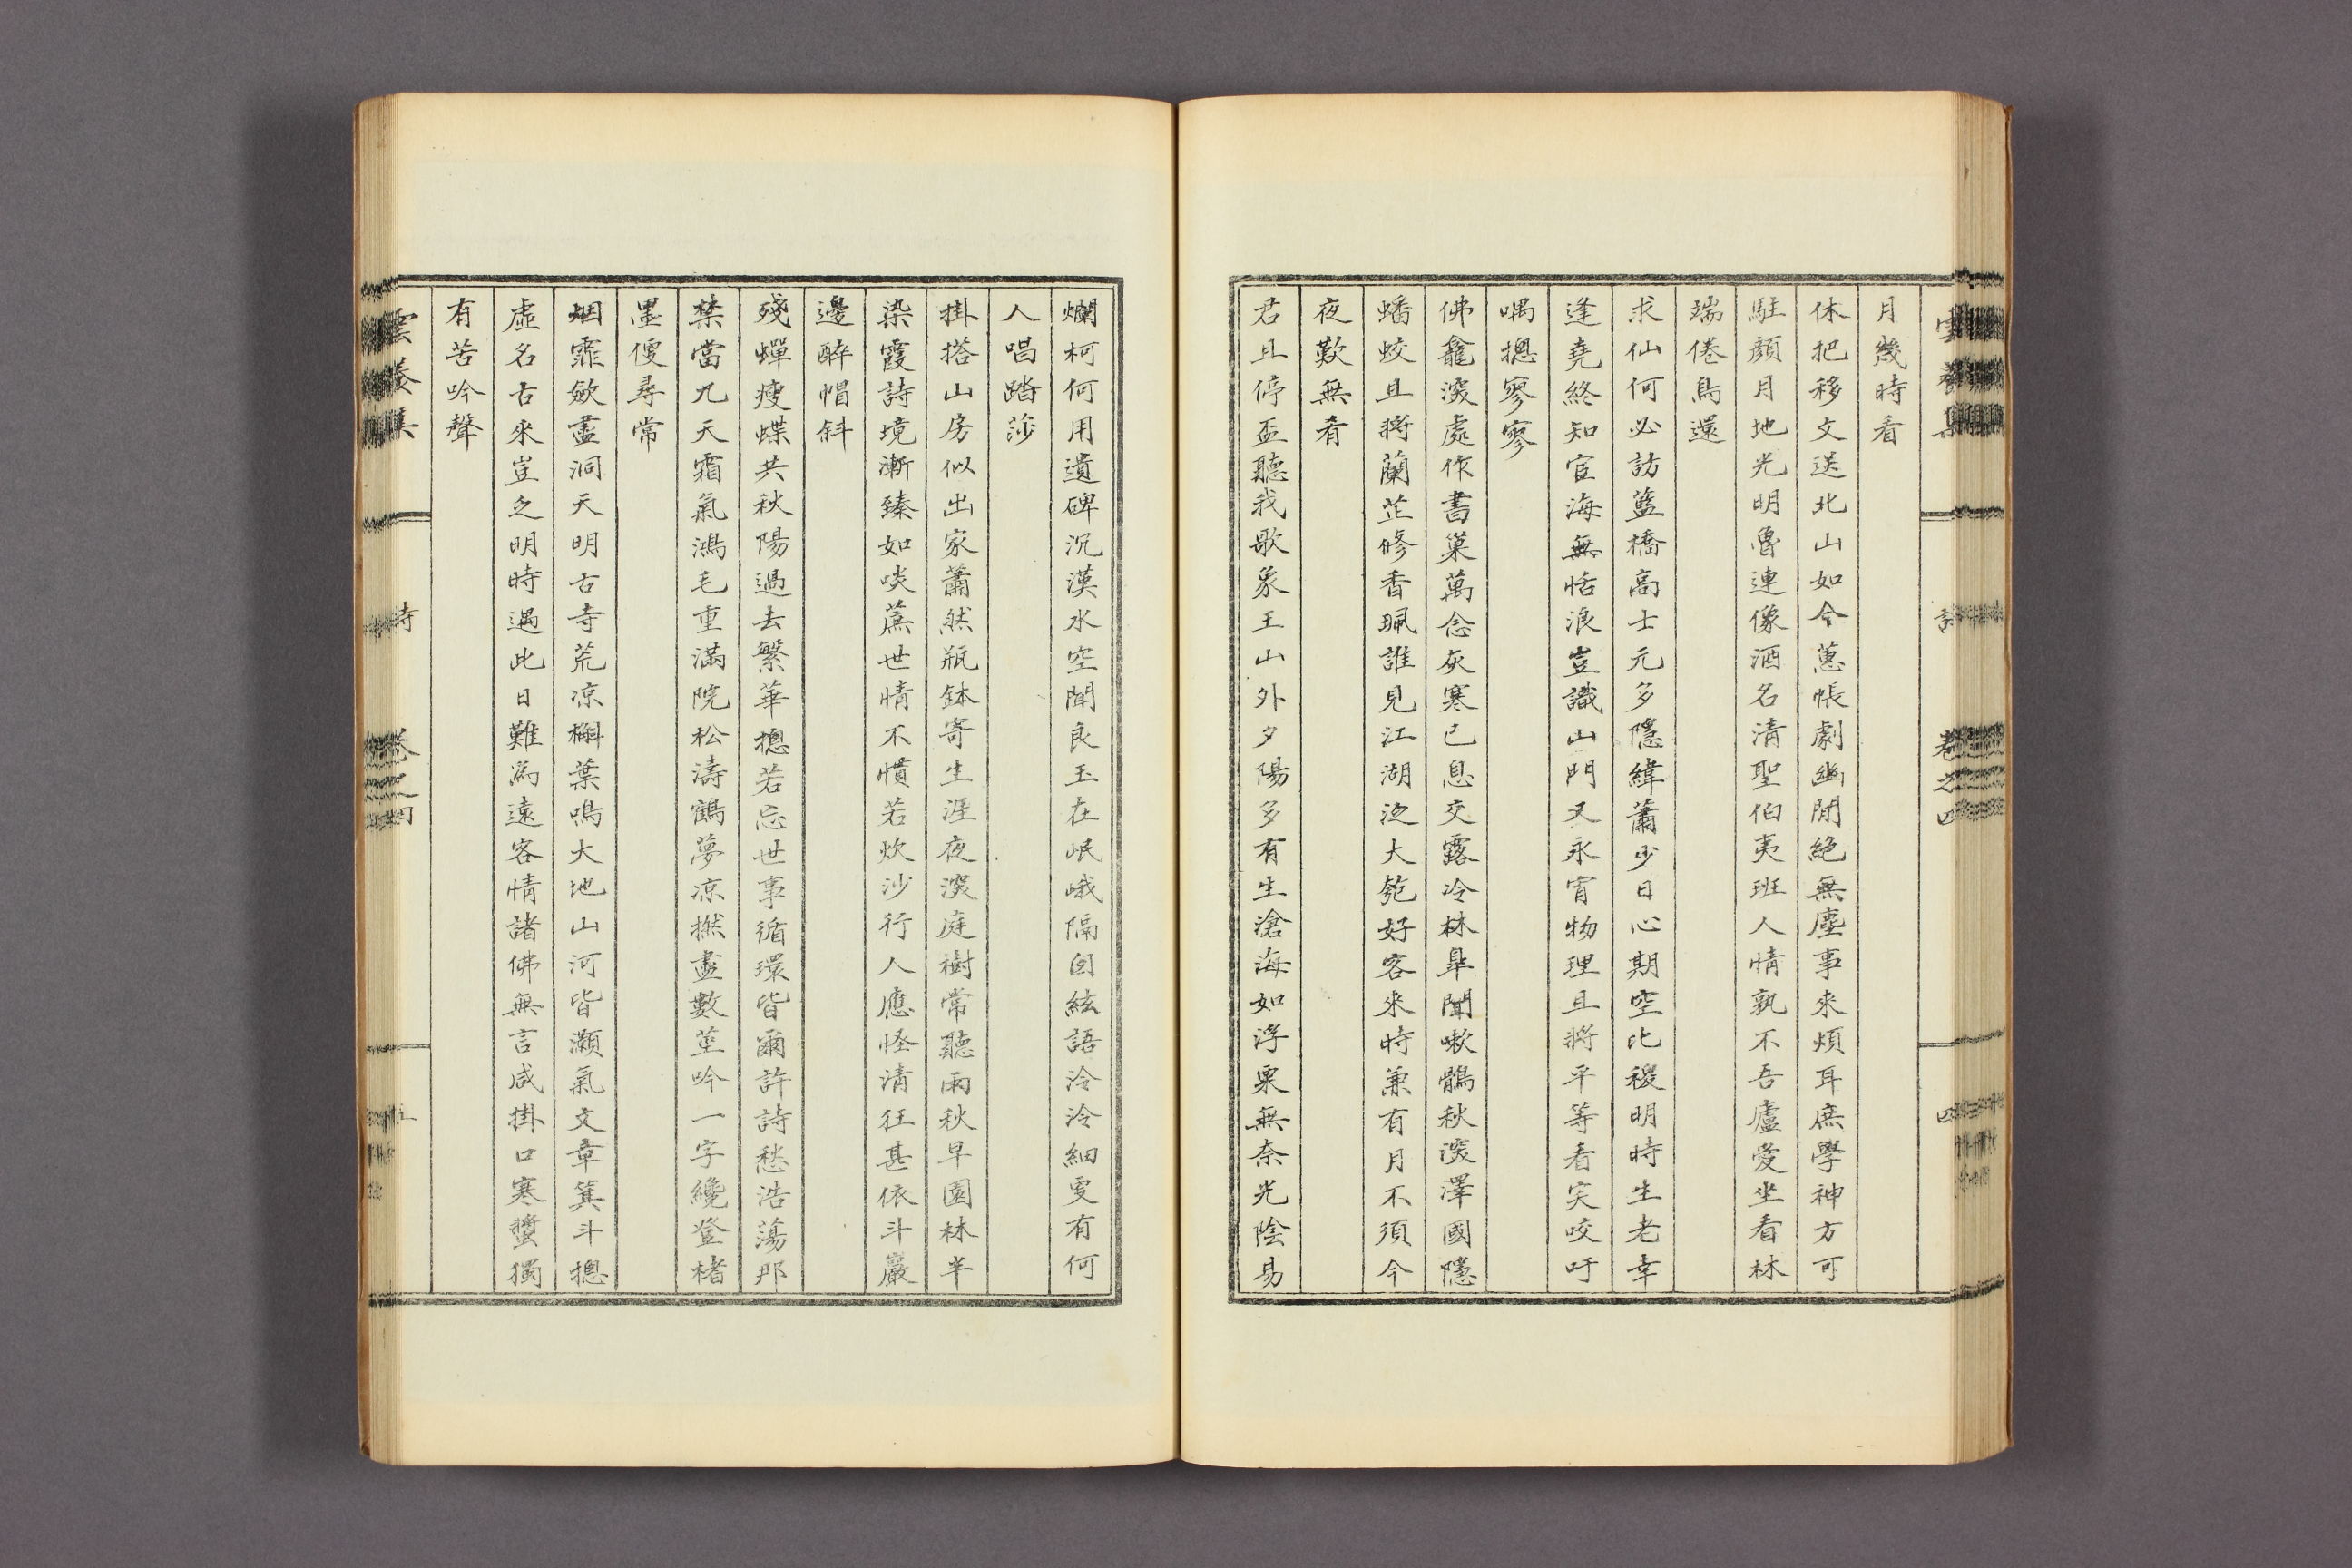 月幾時看
休把移文送北山如今蕙帳劇幽閒絕無塵事來煩耳庶學神方可
駐顔月地光明魯連像酒名清聖伯夷班人情孰不吾廬愛坐看林
端倦鳥還
求仙何必訪藍橋高士元多隱緯蕭少日心期空比稷明時生老幸
逢堯終知宦海無恬浪豈識山門又永宵物理且將平等看宎咬吁
喁摠寥寥
佛龕深處作書巢萬念灰寒已息交露冷林臯聞嗽鶻秋深澤國隱
蟠蛟且將蘭茝修香珮誰見江湖泛大匏好客來時兼有月不須今
夜歎無肴
君且停盃聽我歌象王山外夕陽多有生滄海如浮粟無奈光陰易
爛柯何用遺碑沉漢水空聞良玉在岷峨隔囱絃語泠泠細更有何
人唱踏莎
掛搭山房似出家蕭然瓶鉢寄生涯夜深庭樹常聽雨秋早園林半
染霞詩境漸臻如啖蔗世情不慣若炊沙行人應怪清狂甚依斗巖
邊醉帽斜
殘蟬瘦蝶共秋陽過去繁華摠若忘世事循環皆爾許詩愁浩蕩那
禁當九天霜氣鴻毛重滿院松濤鶴夢凉撚盡數莖吟一字纔登楮
墨便尋常
烟霏歛盡洞天明古寺荒凉槲葉鳴大地山河皆灝氣文章箕斗摠
虛名古來豈乏明時遇此日難爲遠客情諸佛無言咸掛口寒螿獨
有苦吟聲